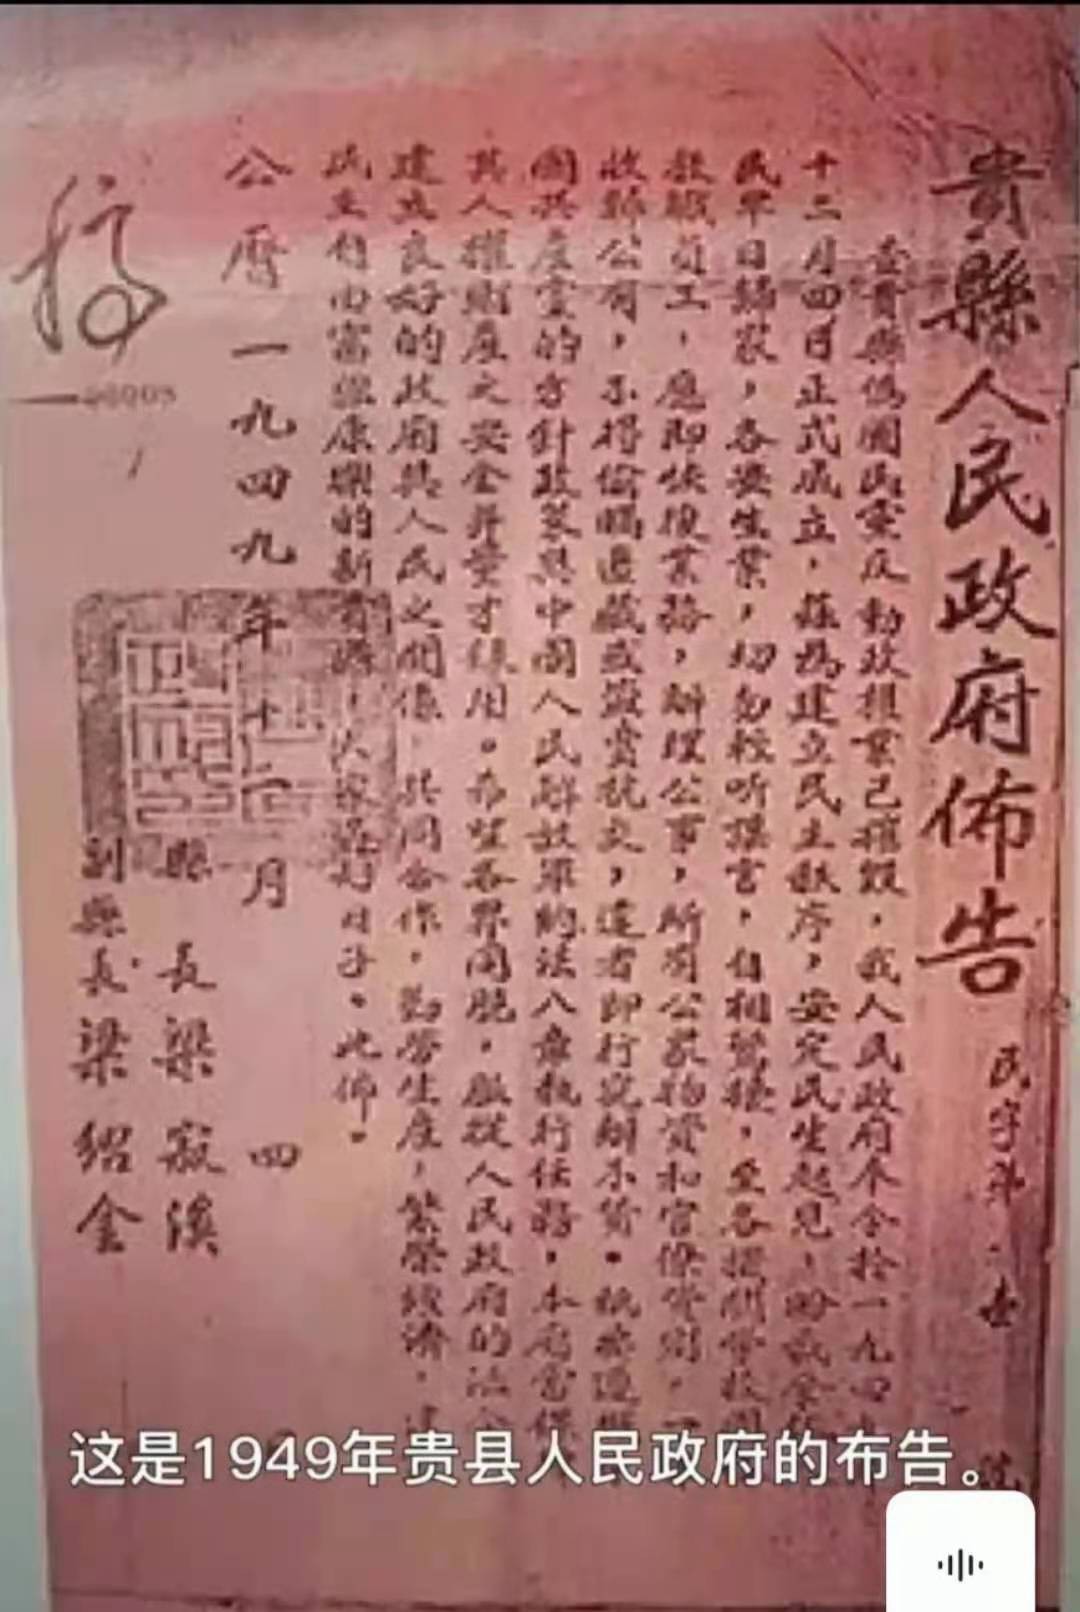 貴縣人民政府佈告
民字第
查貴縣偽國民黨反動政權業已摧毀，我人民政府本令於一九四九
十二月四日正式成立，茲為建立民主秩序，安定民生起見，盼我全
民早日歸家，各安生業，切勿輕听謠言，自相驚擾，至各機關學校
教職員工，應即恢復業務，辦理公事，所有公家物資和官僚資財，一
收歸公有，不得偷瞞匿藏或盜賣抗交，違者即行究辦不貸。
國共產黨的方針政策與中國人民解放軍約法八章執行任務，本府當保
其人權財產之安全并量才錄用。希望各界同胞，服從人民政府的法
建立良好的政府與人民之關係，共同合作，勤勞生產，繁榮經濟，
民主自由富強康樂的新貴縣，大家過好日子。此佈。
公曆一九四九年十二月四
縣長梁寂溪
副縣長梁紹金
这是1949年贵县人民政府的布告。